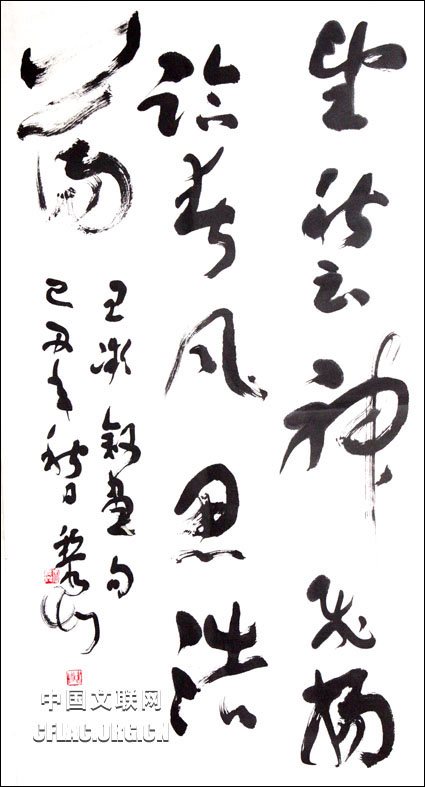 望秋云神飞扬
临春风思浩
荡
王微叙画句
己丑年秋日
中国文联网
CFLAC.ORG.CN